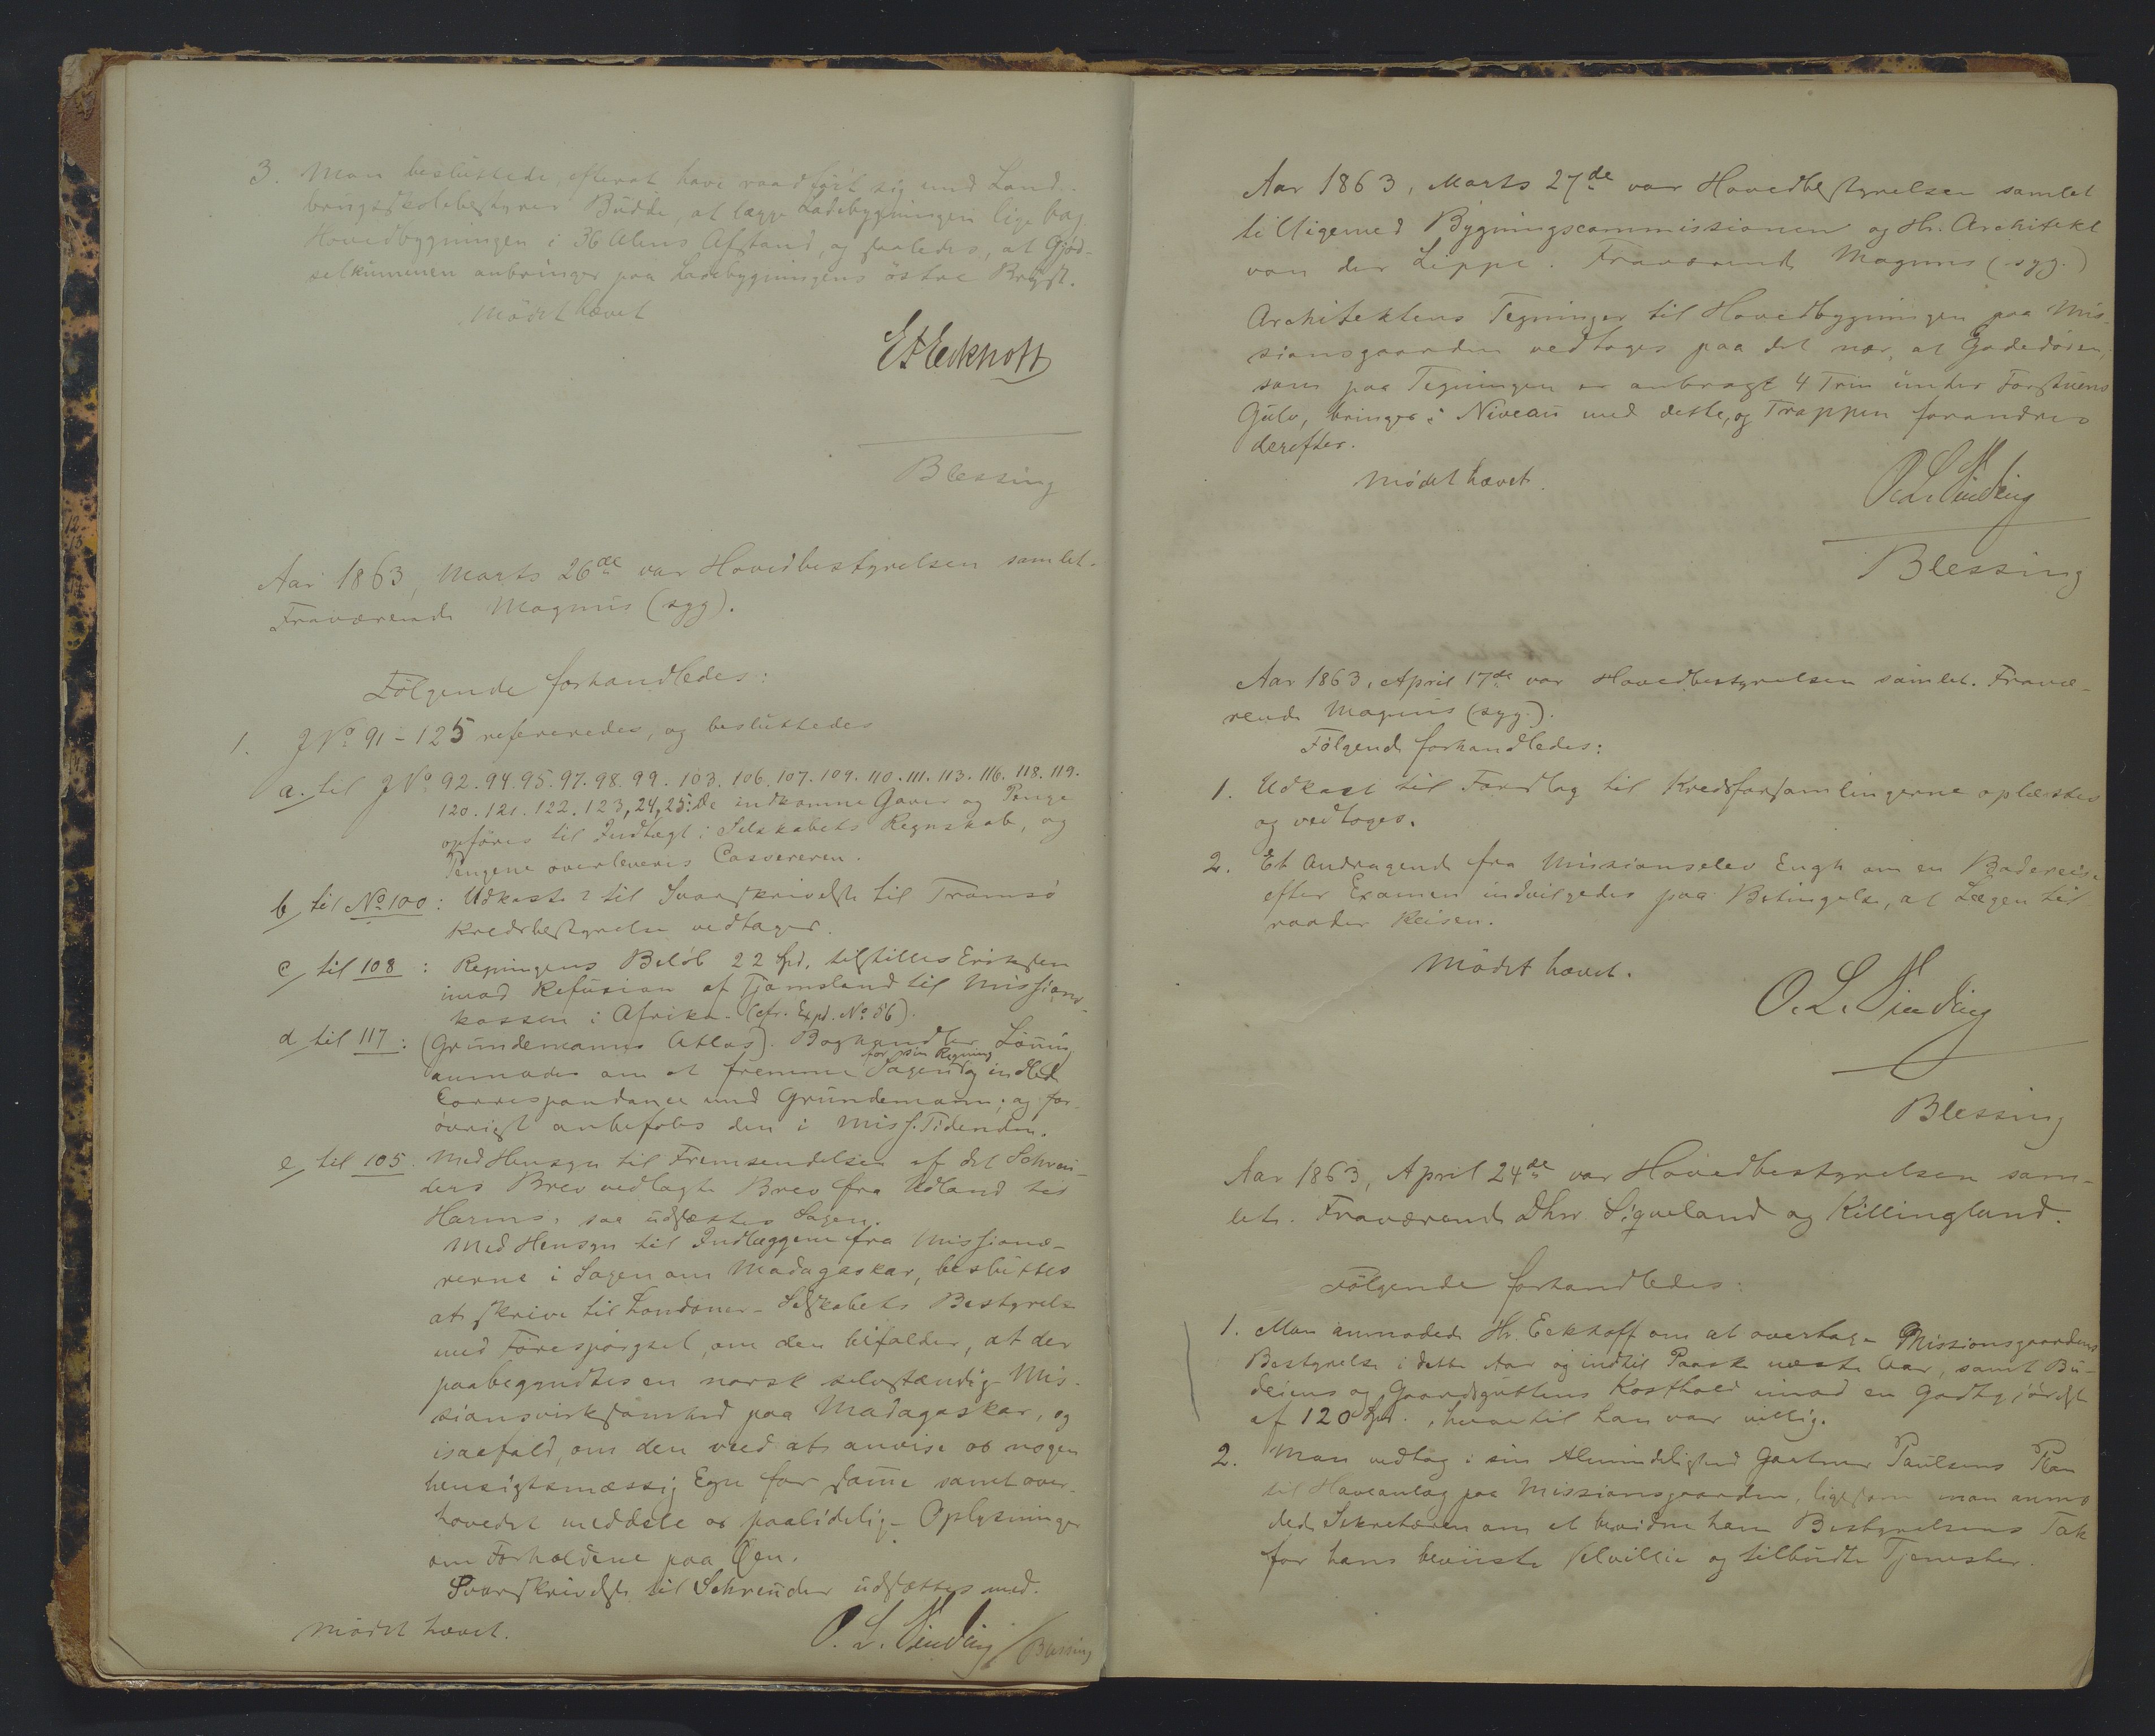 3. Man besluttede, efterat have raadført sig med Land-
brugsskolebestyrer Budde, at lægge Ladebygningen lige bag
Hovedbygningen i 36 Alens Afstand, og saaledes, at Gjød-
selkummen anbringes paa Ladebygningens östre Bryst.
Mödet hævet
Blessing
Aar 1863, Marts 26de var Hovedbestyrelsen samlet.
Fraværende Magnus (syg).
Fölgende forhandledes:
1. J No 91-125 refereredes, og besluttedes
a. til J No 92. 94. 95. 97. 98. 99. 103. 106. 107. 109. 110. 111. 113. 116. 118. 119.
120. 121. 122. 123, 24, 25: De indkomne Gaver og Penge
opföres til Indtægt i Selskabets Regnskab, og
Pengene overleveres Cassereren.
b/ til No 100: Udkastet til Svarskrivelse til Tromsö
Kredsbestyrelse vedtages.
c/ til 108: Regningens Belöb 22 Spd. tilstilles Eriksen
imod Refusion af Tjomsland til Missions-
kassen i Afrika. (cfr. Expd. No 56).
d/ til 117: (Grundemanns Atlas). Boghandler
anmodes om at fremme Sagen for sin Regning og indlede
Correspondance med Grundemann; og for-
övrigt anbefales den i Miss. Tidenden.
e/ til 105. Med Hensyn til Fremsendelsen af det Schreu-
ders Brev vedlagte Brev fra Udland til
Harms, saa udsættes Sagen.
Med Hensyn til Indlæggene fra Missionæ-
rerne i Sagen om Madagaskar, besluttes
at skrive til Londoner-Selskabets Bestyrelse
med Forespörgsel, om den bifalder, at der
paabegyndtes en norsk selvstændig Mis-
sionsvirksomhed paa Madagaskar, og
isaafald, om den veed at anvise os nogen
hensigtsmæssig Egn for samme samt over-
hovedet meddele os paalidelige Oplysninger
om Forholdene paa Öen.
Svarskrivelse til Schreuder udsættes med.
Mödet hævet.
O. L. Sinding / Blessing
Aar 1863, Marts 27de var Hovedbestyrelsen samlet
tilligemed Bygningscommissionen og Hr. Architekt
von der Lippe. Fraværende Magnus (syg.)
Architektens Tegninger til Hovedbygningen paa Mis-
sionsgaarden vedtages paa det nær, at Gadedören,
som paa Tegningen er anbragt 4 Trin under Forstuens
Gulv, bringes i Niveau med dette, og Trappen forandres
derefter.
Mödet hævet.
O. L. Sinding
Blessing
Aar 1863, April 17de var Hovedbestyrelsen samlet. Fravæ-
rende Magnus (syg.).
Fölgende forhandledes:
1. Udkast til Forslag til Kredsforsamlingerne oplæstes
og vedtoges.
2. Et Andragende fra Missionselev Engh om en Badereise
efter Examen indvilgedes paa Betingelse, at Lægen til-
raader Reisen.
Mödet hævet.
O. L. Sinding
Blessing
Aar 1863, April 24de var Hovedbestyrelsen sam-
let. Fraværende Dhrr Siqveland og Killingland.
Fölgende forhandledes:
1. Man anmodede Hr. Eckhoff om at overtage Missionsgaardens
Bestyrelse i dette Aar og indtil Paaske næste Aar, samt Bu-
deiens og Gaardsguttens Kosthold imod en Godtgjörelse
af 120 Spd., hvortil han var villig.
2. Man vedtog i sin Almindelighed Gartner Paulsens Plan
til Haveanlæg paa Missionsgaarden, ligesom man anmo-
dede Sekretæren om at bevidne ham Bestyrelsens Tak
for hans beviiste Velvillie og tilbudte Tjenester.